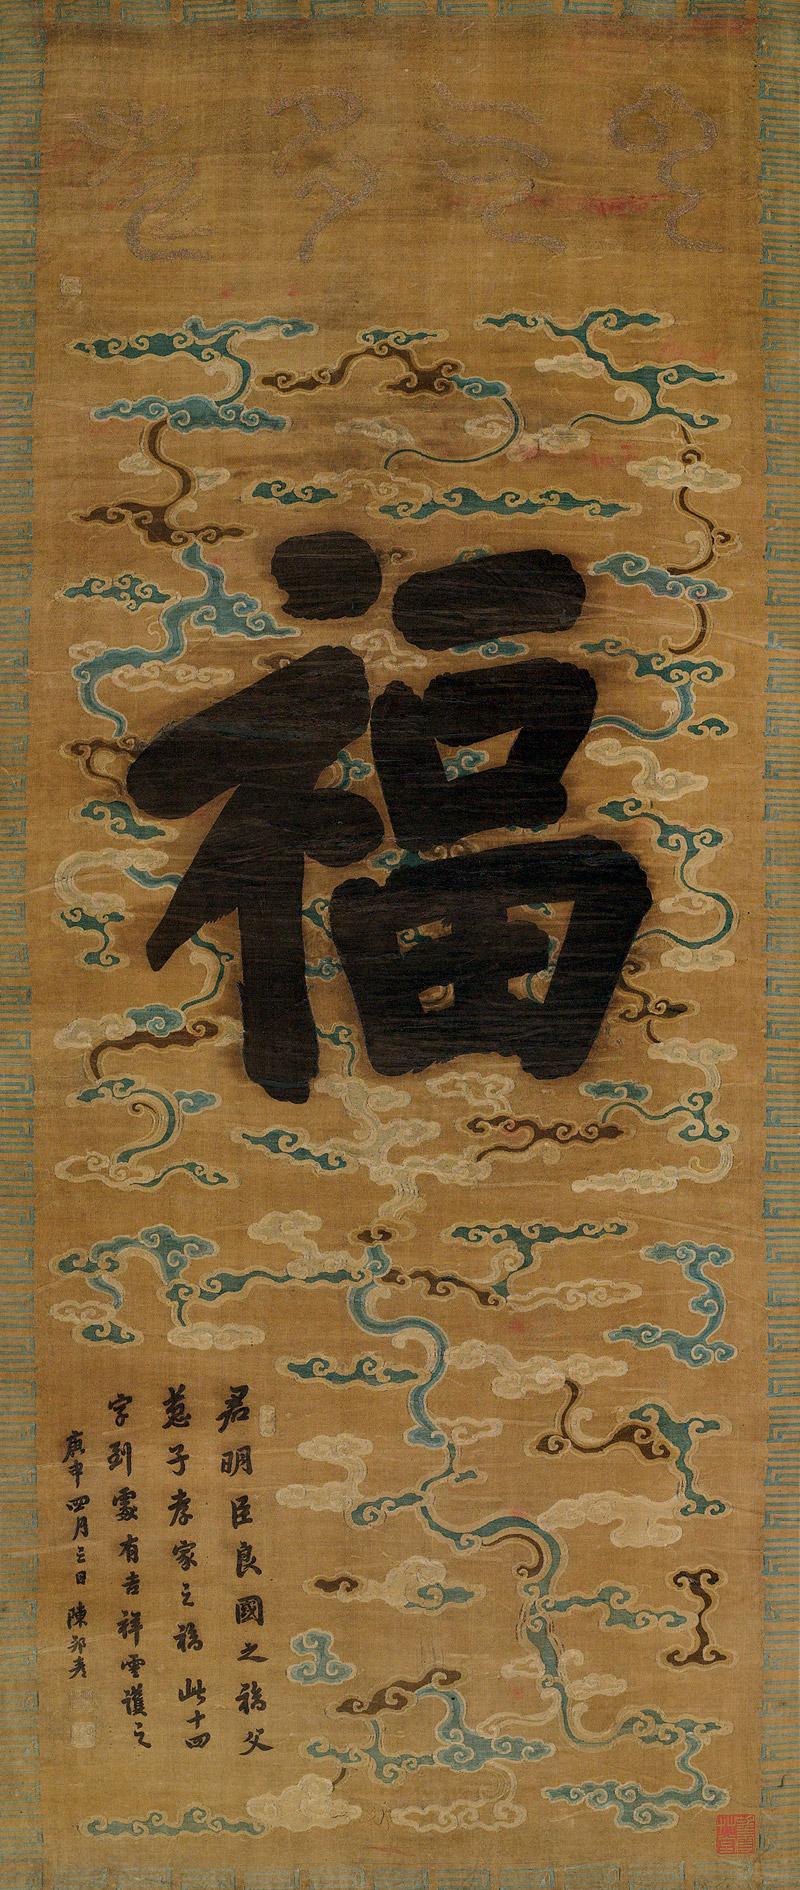 福
君明臣良國之福父
慈子孝家之福此十四
字到處有吉祥雲護之
庚申四月三日陳邦彥